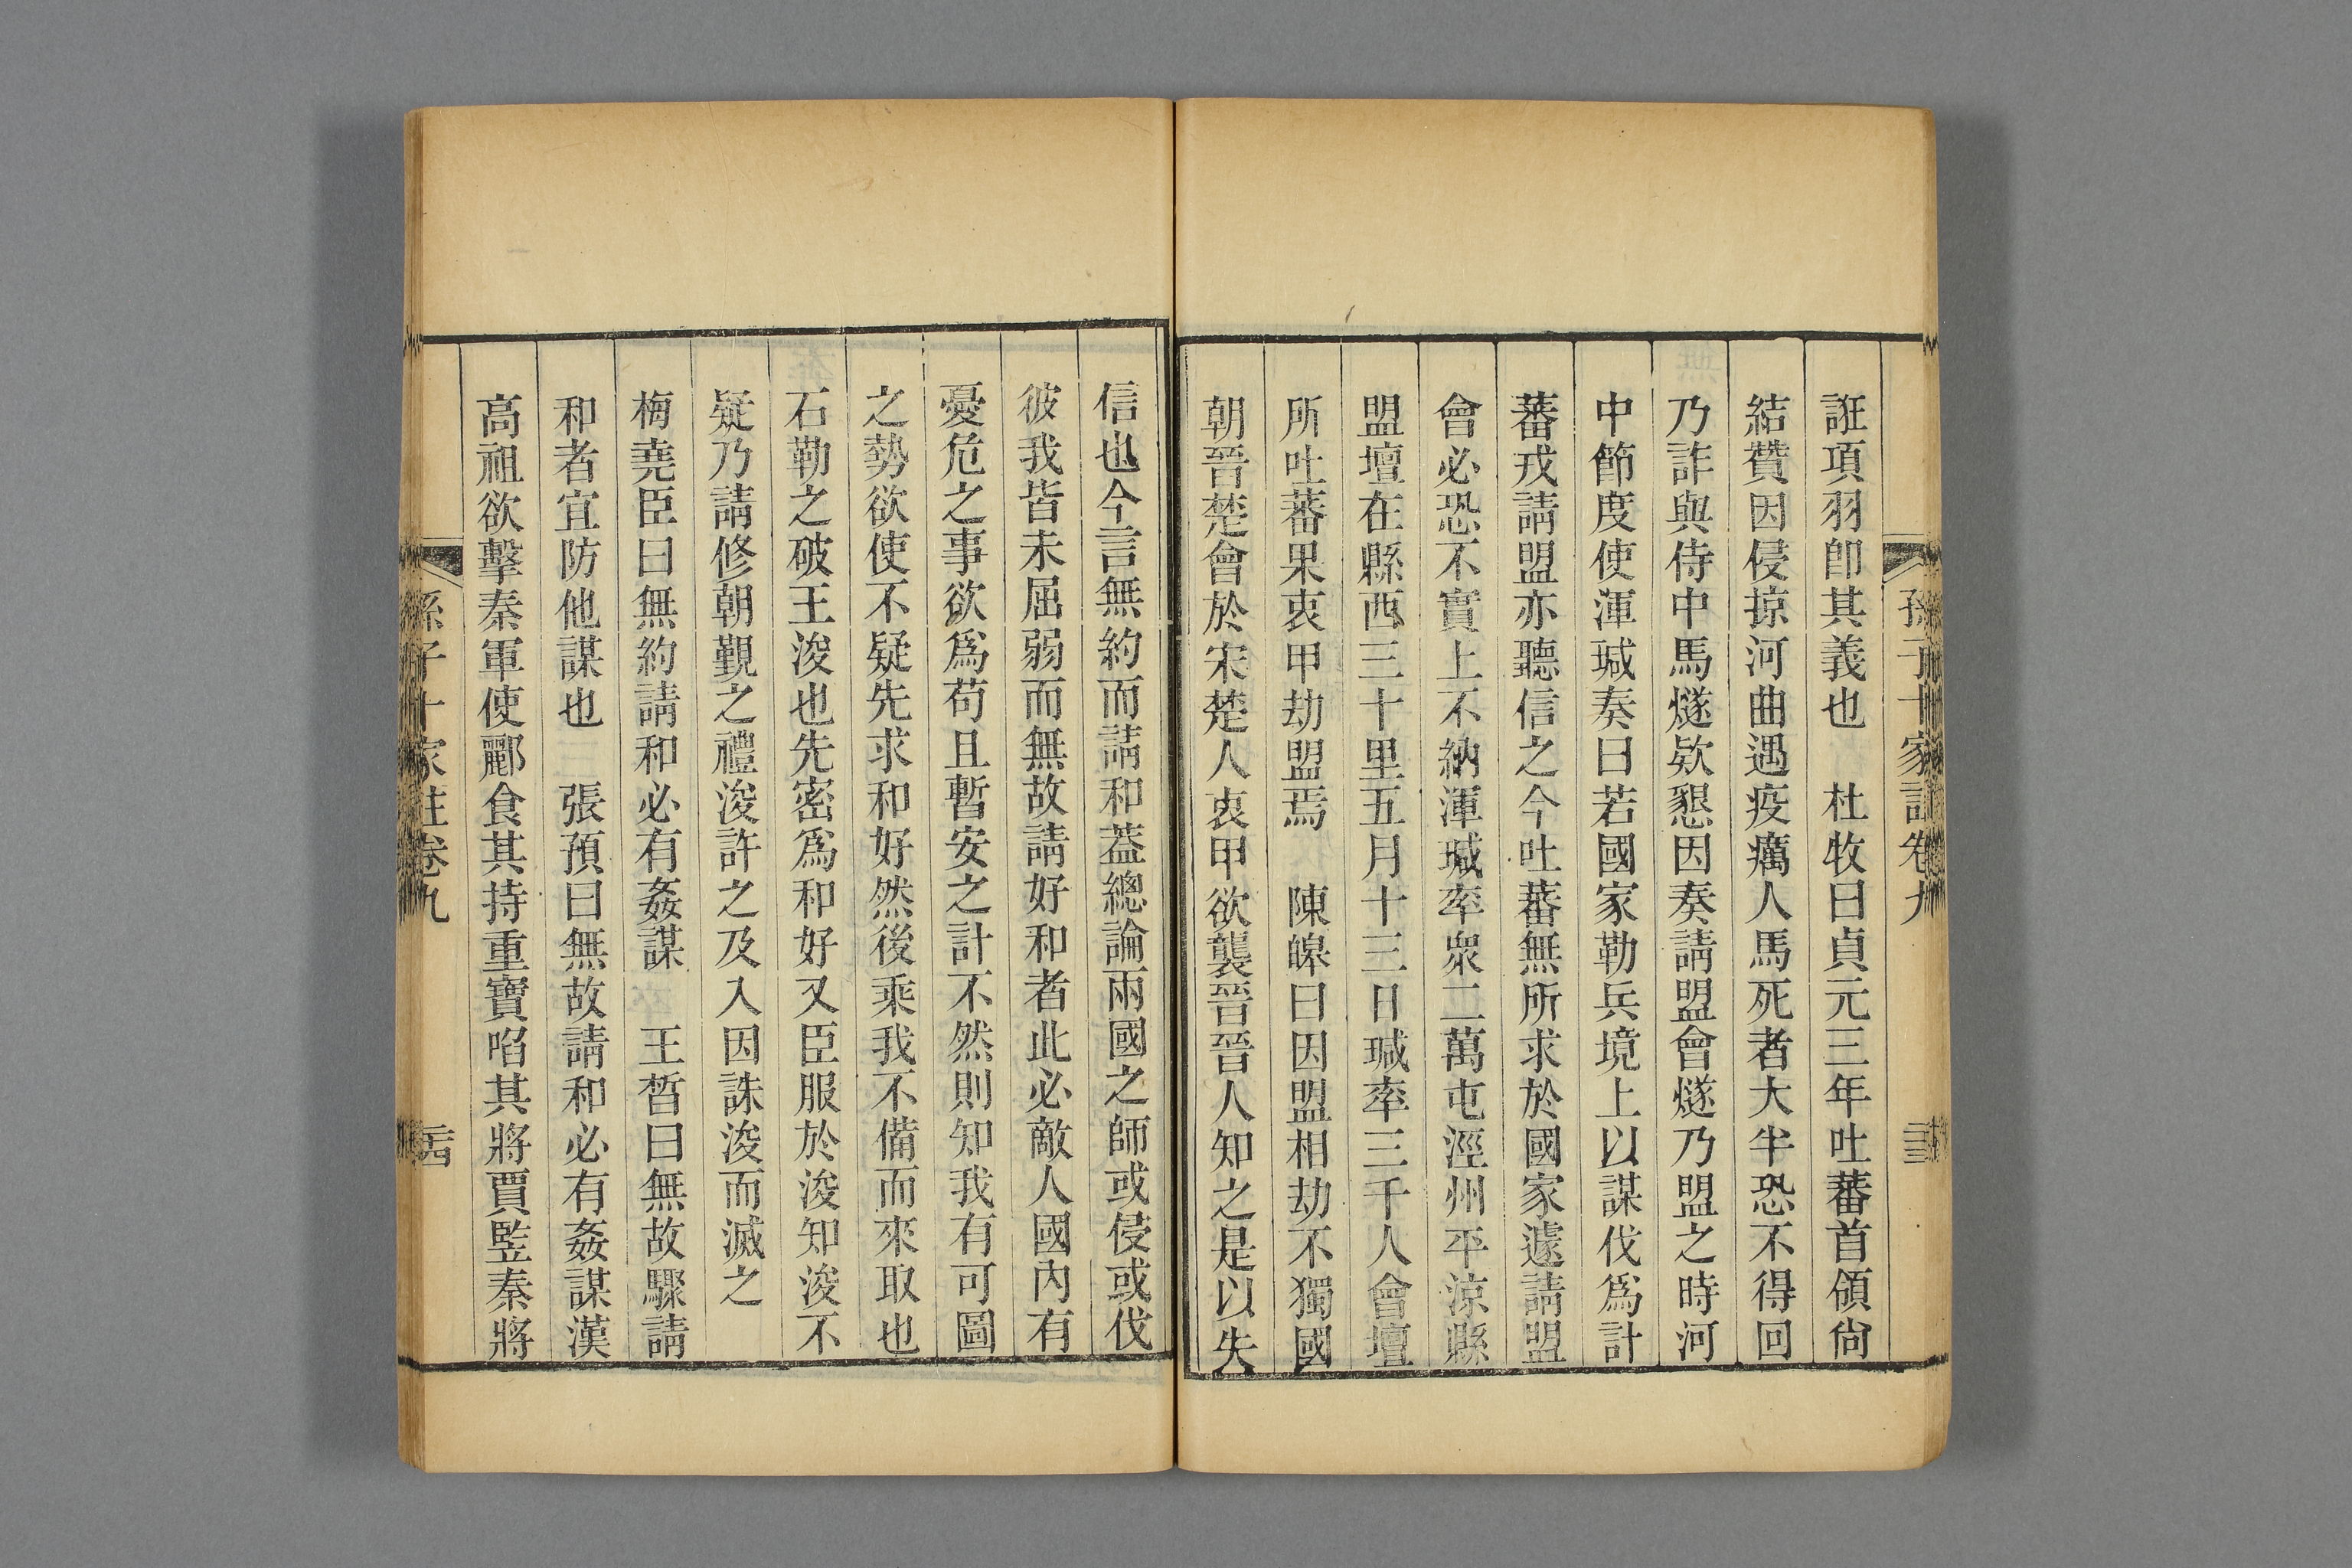 孫子十家註卷九 二十三
誑項羽卽其義也 杜牧曰貞元三年吐蕃首領尙
結贊因侵掠河曲遇疫癘人馬死者大半恐不得回
乃詐與侍中馬燧欵懇因奏請盟會燧乃盟之時河
中節度使渾瑊奏曰若國家勒兵境上以謀伐爲計
蕃戎請盟亦聽信之今吐蕃無所求於國家遽請盟
會必恐不實上不納渾瑊率衆二萬屯涇州平涼縣
盟壇在縣西三十里五月十三日瑊率三千人會壇
所吐蕃果衷甲劫盟焉 陳皥曰因盟相劫不獨國
朝晉楚會於宋楚人衷甲欲襲晉晉人知之是以失
信也今言無約而請和蓋總論兩國之師或侵或伐
彼我皆未屈弱而無故請好和者此必敵人國內有
憂危之事欲爲苟且暫安之計不然則知我有可圖
之勢欲使不疑先求和好然後乘我不備而來取也
石勒之破王浚也先密爲和好又臣服於浚知浚不
疑乃請修朝覲之禮浚許之及入因誅浚而滅之
梅堯臣曰無約請和必有姦謀 王晳曰無故驟請
和者宜防他謀也 張預曰無故請和必有姦謀漢
高祖欲擊秦軍使酈食其持重寶啗其將賈豎秦將
孫子十家註卷九 二十四